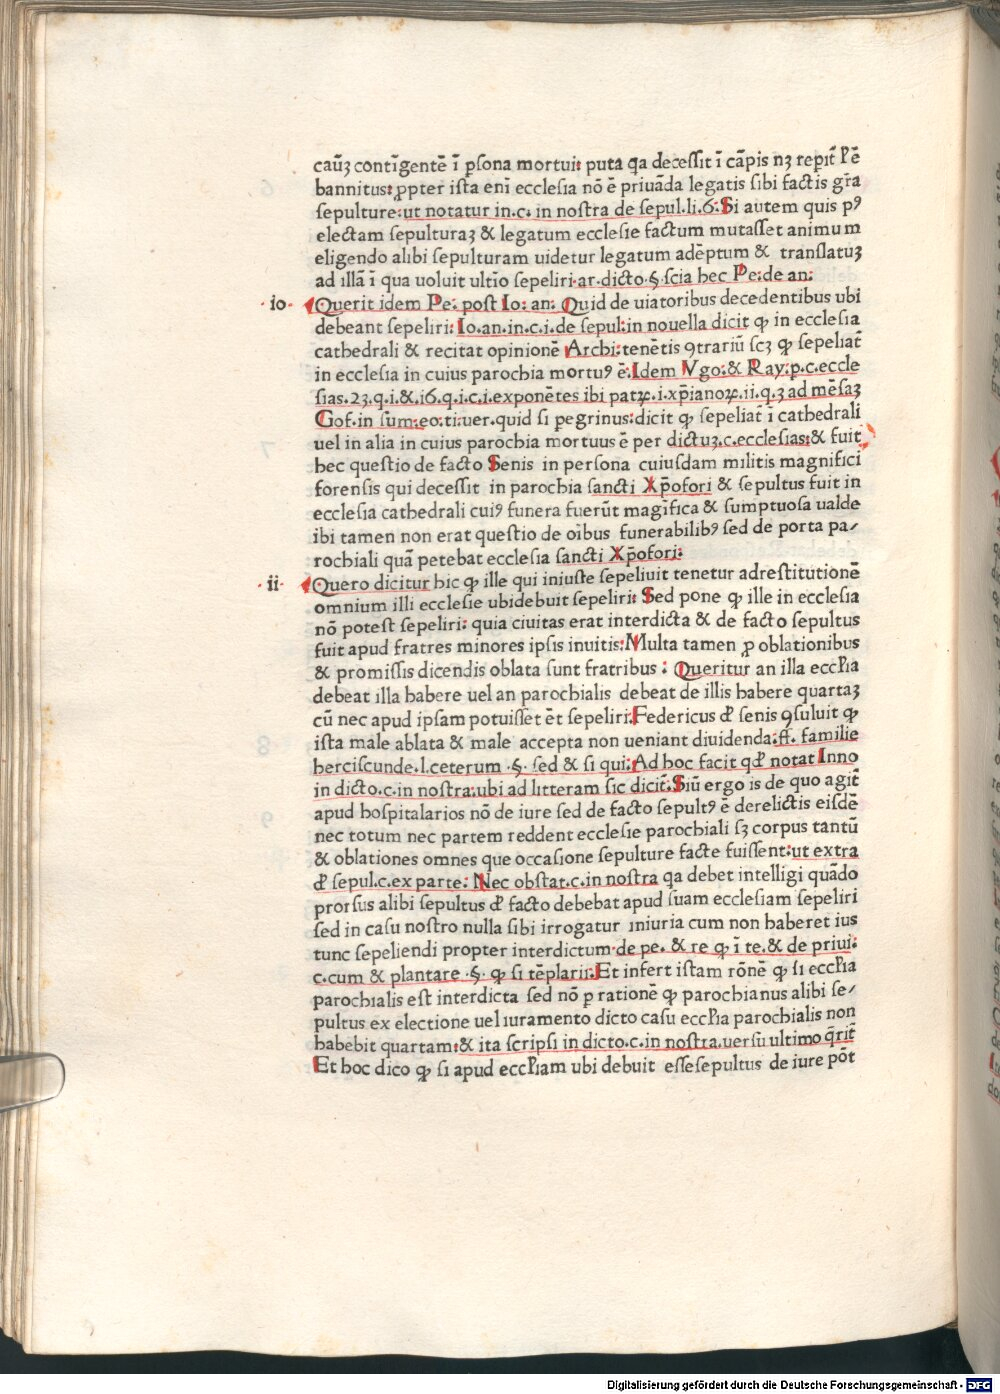 cau̅ꝫ conti̅gente̅ i̅ ꝑsona mortui: puta qa decessit i̅ ca̅pis nꝫ repit̅ Pe̅
bannitus: ꝓpter ista eni̅ ecclesia no̅ e̅ priua̅da legatis sibi factis gr̅a
sepulture: ut notatur in.c. in nostra de sepul.li.6. Si autem quis pꝰ
electam sepulturaꝫ & legatum ecclesie factum mutasset animum
eligendo alibi sepulturam uidetur legatum ade̅ptum & translatuꝫ
ad illa̅ i̅ qua uoluit ulti̅o sepeliri.ar.dicto.§.scia hec Pe: de an:
·io· Querit idem Pe: post Io: an: Quid de uiatoribus decedentibus ubi
debeant sepeliri: Io.an.in.c.i.de sepul:in nouella dicit ꝙ in ecclesia
cathedrali & recitat opinione̅ Archi: tene̅tis ꝯtrariu̅ scꝫ ꝙ sepeliat̅
in ecclesia in cuius parochia mortuꝰ e̅: Idem Vgo: & Ray: p.c.eccle
sias.23.q.i.&.i6.q.i.c.i.expone̅tes ibi patꝝ.i.xp̅ianoꝝ.ii.q.3 ad me̅saꝫ
Gof.in su̅m:eo:ti:uer.quid si pegrinus: dicit ꝙ sepeliat̅ i̅ cathedrali
uel in alia in cuius parochia mortuus e̅ per dictuꝫ.c.ecclesias: & fuit
hec questio de facto Senis in persona cuiusdam militis magnifici
forensis qui decessit in parochia sancti Xp̅ofori & sepultus fuit in
ecclesia cathedrali cuiꝰ funera fueru̅t magi̅fica & sumptuosa ualde
ibi tamen non erat questio de oi̅bus funerabilibꝰ sed de porta pa⸗
rochiali qua̅ petebat ecclesia sancti Xp̅ofori:
·ii· Quero dicitur hic ꝙ ille qui iniuste sepeliuit tenetur adrestitutione̅
omnium illi ecclesie ubidebuit sepeliri: Sed pone ꝙ ille in ecclesia
no̅ potest sepeliri: quia ciuitas erat interdicta & de facto sepultus
fuit apud fratres minores ipsis inuitis: Multa tamen ꝓ oblationibus
& promissis dicendis oblata sunt fratribus: Queritur an illa eccl̅ia
debeat illa habere uel an parochialis debeat de illis habere quartaꝫ
cu̅ nec apud ipsam potuisset e̅t sepeliri: Federicus d̅ senis ꝯsuluit ꝙ
ista male ablata & male accepta non ueniant diuidenda: ff. familie
herciscunde.l.ceterum .§. sed & si qui: Ad hoc facit qd̅ notat Inno
in dicto.c.in nostra: ubi ad litteram sic dicit̅. Siu̅ ergo is de quo agit̅
apud hospitalarios no̅ de iure sed de facto sepultꝰ e̅ derelictis eisde̅
nec totum nec partem reddent ecclesie parochiali sꝫ corpus tantu̅
& oblationes omnes que occasione sepulture facte fuissent: ut extra
d̅ sepul.c.ex parte: Nec obstat.c.in nostra qa debet intelligi qua̅do
prorsus alibi sepultus d̅ facto debebat apud suam ecclesiam sepeliri
sed in casu nostro nulla sibi irrogatur iniuria cum non haberet ius
tunc sepeliendi propter interdictum.de pe. & re ꝙ i̅ te.& de priui:
c.cum & plantare .§. ꝙ si te̅plarii: Et infert istam ro̅ne̅ ꝙ si eccl̅ia
parochialis est interdicta sed no̅ p ratione̅ ꝙ parochianus alibi se⸗
pultus ex electione uel iuramento dicto casu eccl̅ia parochialis non
habebit quartam: & ita scripsi in dicto.c.in nostra.uersu ultimo q̅rit̅
Et hoc dico ꝙ si apud eccl̅iam ubi debuit essesepultus de iure po̅t
Digitalisierung gefördert durch die Deutsche Forschungsgemeinschaft - DFG